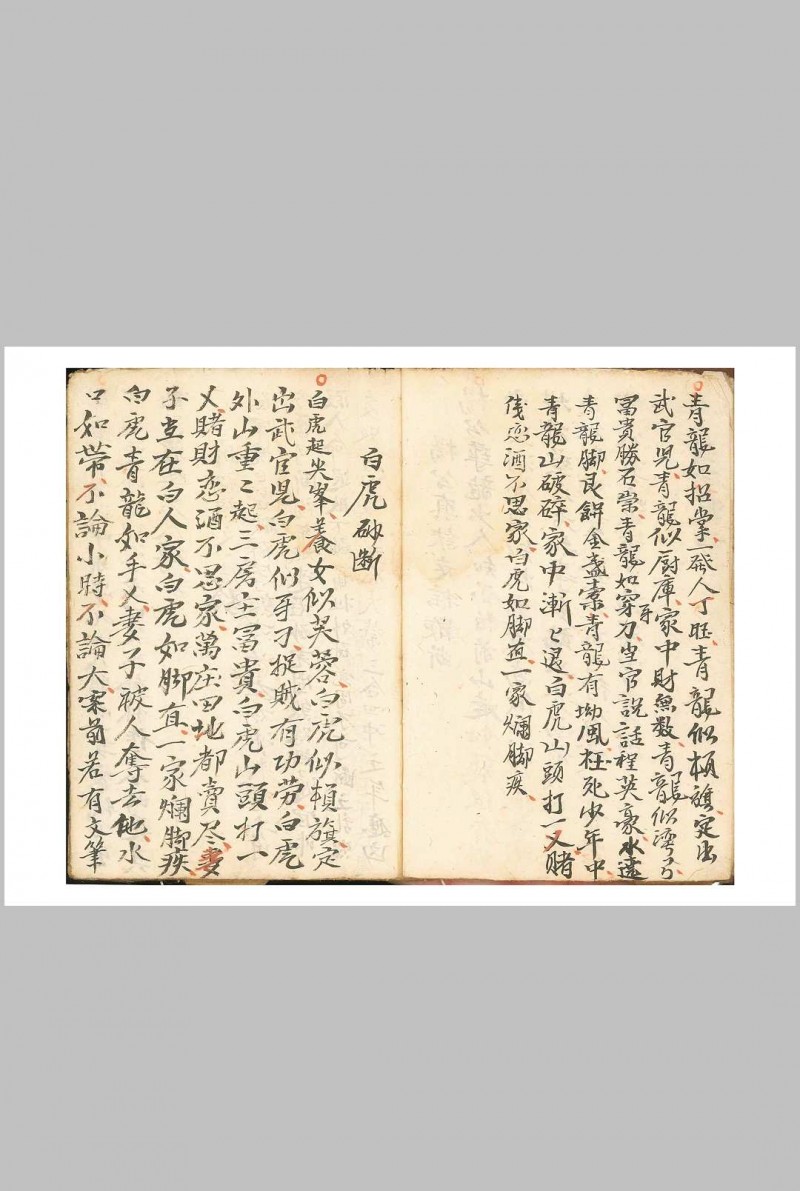 青龍如招掌一發人丁旺青龍似頓旗定出
武官児青龍似厨庫家中財無数青龍似湾弓
冨貴勝石崇青龍如穿刀牙出官説話程英豪水遶
青龍脚艮餅金盞棗青龍有坳風枉死少年中
青龍山破碎家中漸〻退白虎山頭打一乂賭
錢恋酒不思家白虎如脚直一家爛脚疾
白虎砂断
白虎起尖峯養女似芙蓉白虎似頓旗定
出武官児白虎似牙刁捉賊有功劳白虎
外山重〻起三房士冨貴白虎山頭打一
乂賭財恋酒不思家萬庄田地都賣尽妻
子立在白人家白虎如脚直一家爛脚疾
白虎青龍如手乂妻子被人奪去他水
口如带不論小時不論大案前若有文筆